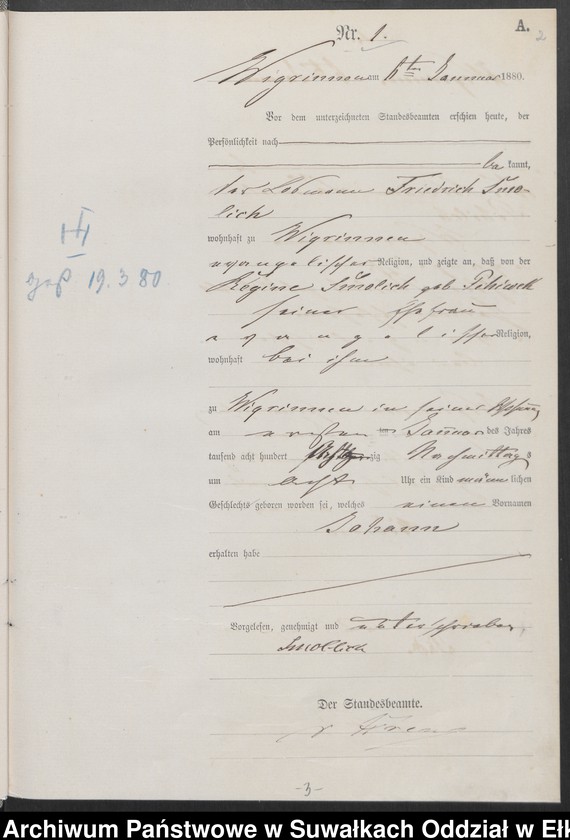 A.
2
Nr. 1.
Wigrinnen am 6ten Januar 1880.
Vor dem unterzeichneten Standesbeamten erschien heute, der
Persönlichkeit nach
be kannt,
der Losmann Friedrich Smo-
lich
wohnhaft zu Wigrinnen
evangelischer Religion, und zeigte an, daß von der
Regine Smolich geb
seiner Ehefrau
evangelischer Religion,
wohnhaft bei ihm
zu Wigrinnen in seiner Wohnung
am ersten Januar des Jahres
tausend acht hundert achtzig zig Nachmittags
um acht Uhr ein Kind männlichen
Geschlechts geboren worden sei, welches einen Vornamen
Johann
erhalten habe
Vorgelesen, genehmigt und unterschrieben,
Smollich
Der Standesbeamte.
gest 19.3 80
-3-
Archiwum Państwowe w Suwałkach Oddział w Ełk